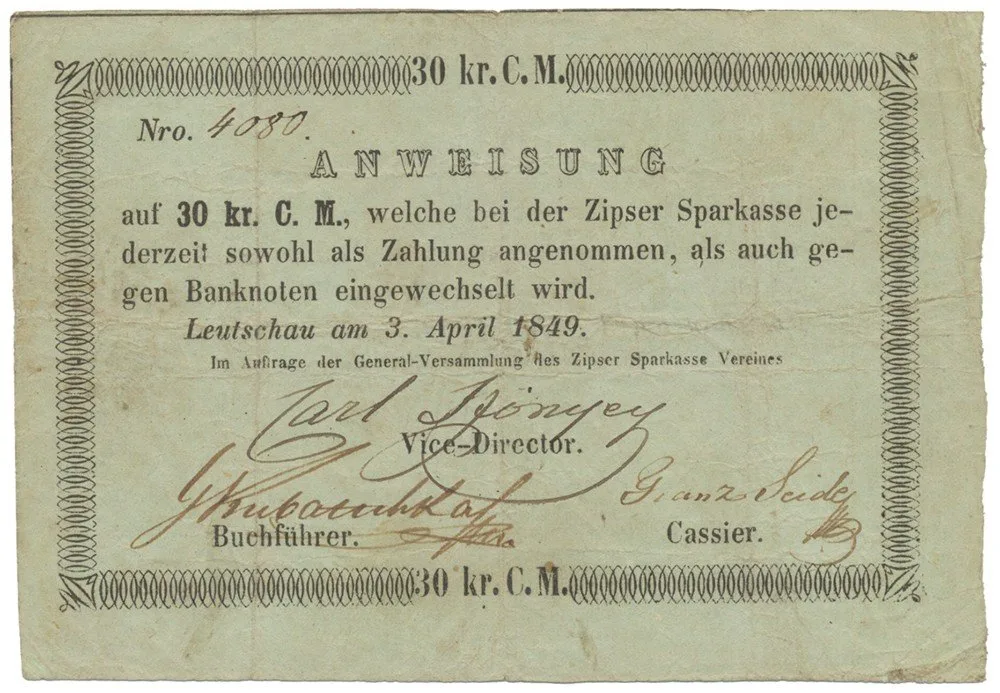 30 kr. C. M.
Nro. 4080.
ANWEISUNG
auf 30 kr. C. M., welche bei der Zipser Sparkasse je-
derzeit sowohl als Zahlung angenommen, als auch ge-
gen Banknoten eingewechselt wird.
Leutschau am 3. April 1849.
Im Auftrage der General-Versammlung des Zipser Sparkasse Vereines
Carl
Vice-Director.
Buchführer.
Cassier.
30 kr. C. M.